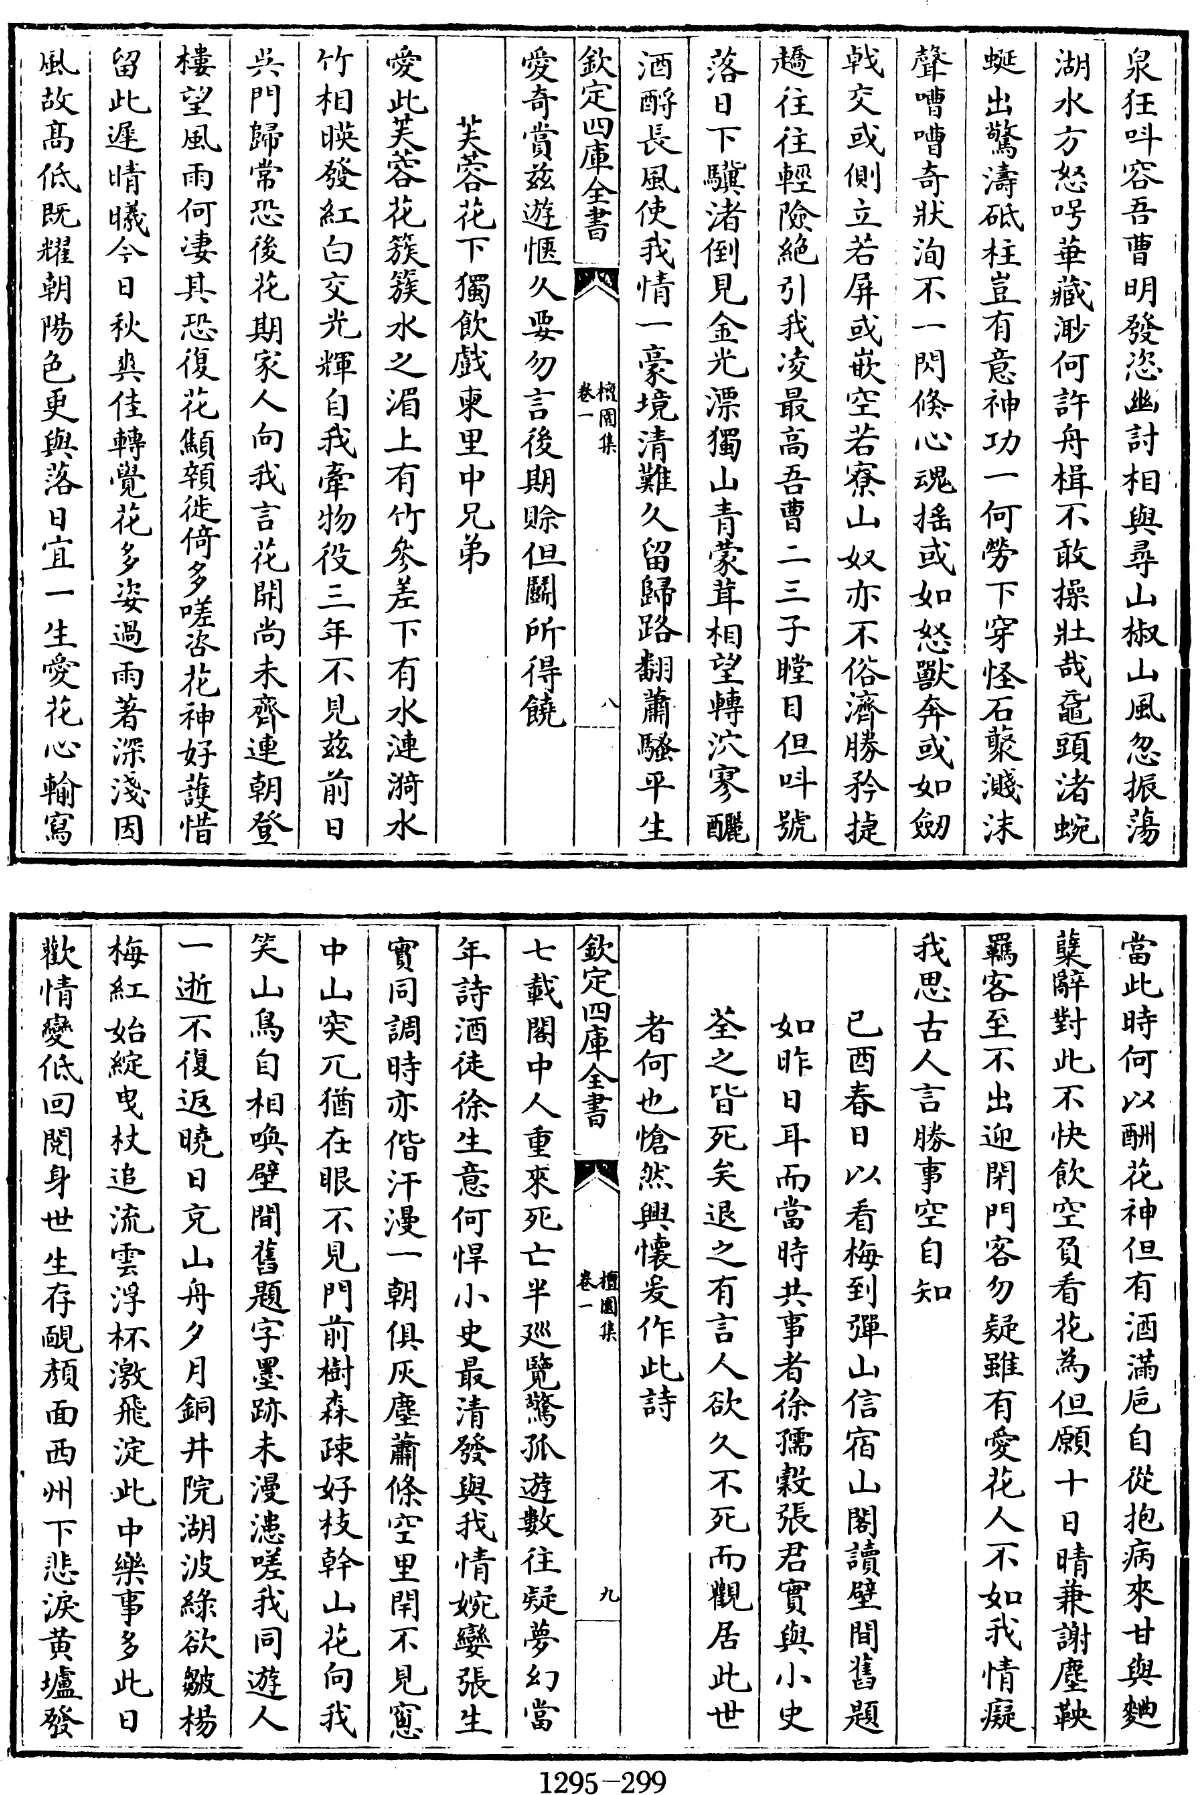 泉狂呌容吾曹明發恣幽討相與尋山椒山風忽振蕩
湖水方怒号華藏渺何許舟楫不敢操壯哉黿頭渚蜿
蜒出驚濤砥柱豈有意神功一何勞下穿怪石聚濺沫
聲嘈嘈奇狀洵不一閃倐心魂搖或如怒獸奔或如劒
戟交或側立若屏或嵌空若寮山奴亦不俗濟勝矜捷
趫往往輕險絶引我凌最高吾曹二三子瞠目但呌號
落日下驥渚倒見金光漂獨山青蒙茸相望轉泬寥釃
酒酹長風使我情一豪境清難久留歸路翻蕭騷平生
欽定四庫全書
檀園集
卷一
八
愛奇賞兹遊愜久要勿言後期賒但鬭所得饒
芙蓉花下獨飲戲柬里中兄弟
愛此芙蓉花簇簇水之湄上有竹參差下有水漣漪水
竹相暎發紅白交光輝自我牽物役三年不見兹前日
吳門歸常恐後花期家人向我言花開尚未齊連朝登
樓望風雨何淒其恐復花顦顇徙倚多嗟咨花神好護惜
留此遲晴曦今日秋爽佳轉覺花多姿過雨著深淺因
風故髙低既耀朝陽色更與落日宜一生愛花心輸寫
當此時何以酬花神但有酒滿巵自從抱病來甘與麯
糵辭對此不快飲空負看花為但願十日晴兼謝塵鞅
羈客至不出迎閉門客勿疑雖有愛花人不如我情癡
我思古人言勝事空自知
已酉春日以看梅到彈山信宿山閣讀壁間舊題
如昨日耳而當時共事者徐孺穀張君實與小史
荃之皆死矣退之有言人欲久不死而觀居此世
者何也愴然興懐爰作此詩
欽定四庫全書
檀園集
卷一
九
七載閣中人重來死亡半廵覽驚孤遊數往疑夢幻當
年詩酒徒徐生意何悍小史最清發與我情婉孌張生
實同調時亦偕汗漫一朝俱灰塵蕭條空里閈不見窻
中山突兀猶在眼不見門前樹森疎好枝幹山花向我
笑山鳥自相喚壁間舊題字墨跡未漫漶嗟我同遊人
一逝不復返曉日克山舟夕月銅井院湖波綠欲皺楊
梅紅始綻曳杖追流雲浮杯激飛淀此中樂事多此日
歡情變低回閱身世生存靦顏面西州下悲淚黄壚發
1295-299